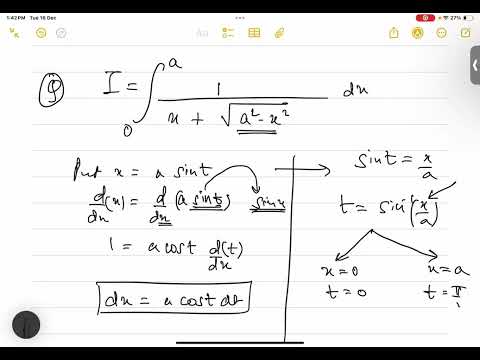 1:42 PM Tue 16 Dec
27%
Aa
Q I = ∫₀ᵃ 1 / (x + √(a² - x²)) dx
Put x = a sint
d/dx (x) = d/dx (a sint) sinx
1 = a cost d/dx (t)
dx = a cost dt
sint = x/a
t = sin⁻¹(x/a)
x = 0 x = a
t = 0 t = π